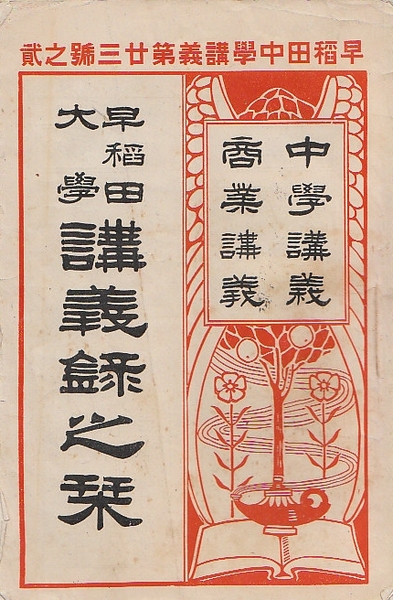 早稻田中學講義第廿三號之貳
中學講義
商業講義
早稻田
大學
講義録之栞